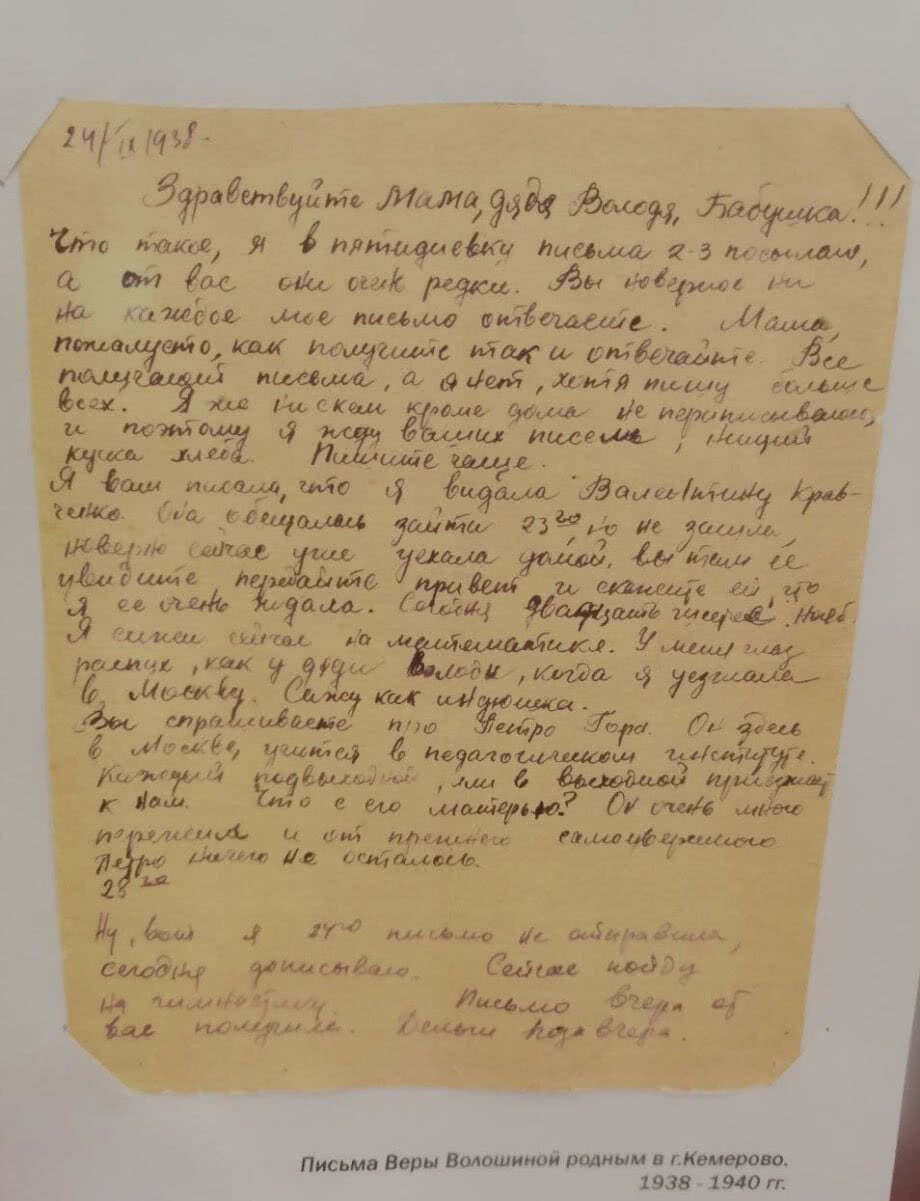 24/IX 1938.
Здравствуйте Мама, дядя Володя, Бабушка!!!
Что такое, я в пятидневку письма 2-3 посылаю,
а от вас они очен редки. Вы наверное ни
на каждое мое письмо отвечаете. Мама,
пожалусто, как получите так и отвечайте. Все
получают письма, а я нет, хотя пишу больше
всех. Я же ни с кем кроме дома не переписываюсь,
и поэтому я жду ваших писем, нищий
куска хлеба. Пишите чаще.
Я вам писала, что я видала Валентину Крав-
ченко. Она обещалась зайти 23го но не зашла,
наверно сейчас уже уехала домой, вы там ее
увидите, передайте привет и скажите ей, что
я ее очень ждала. Сегодня двадцать нояб.
Я сижу сейчас на математике. У меня глаз
распух, как у дяди Володи, когда я уезжала
в Москву. Сижу как индюшка.
Вы спрашиваете про Петро Гора. Он здесь
в Москве, учится в педагогическом институте.
Каждый подвыходной, или в выходной приезжает
к нам. Что с его матерью? Он очень много
пережил и от прежнего
Петро ничего не осталось.
28го
Ну, вот я 24го письмо не отправила,
сегодня дописываю. Сейчас пойду
на гимнастику. Письмо вчера от
вас получила. Деньги поза вчера.
Письма Веры Волошиной родным в г.Кемерово.
1938 - 1940 гг.